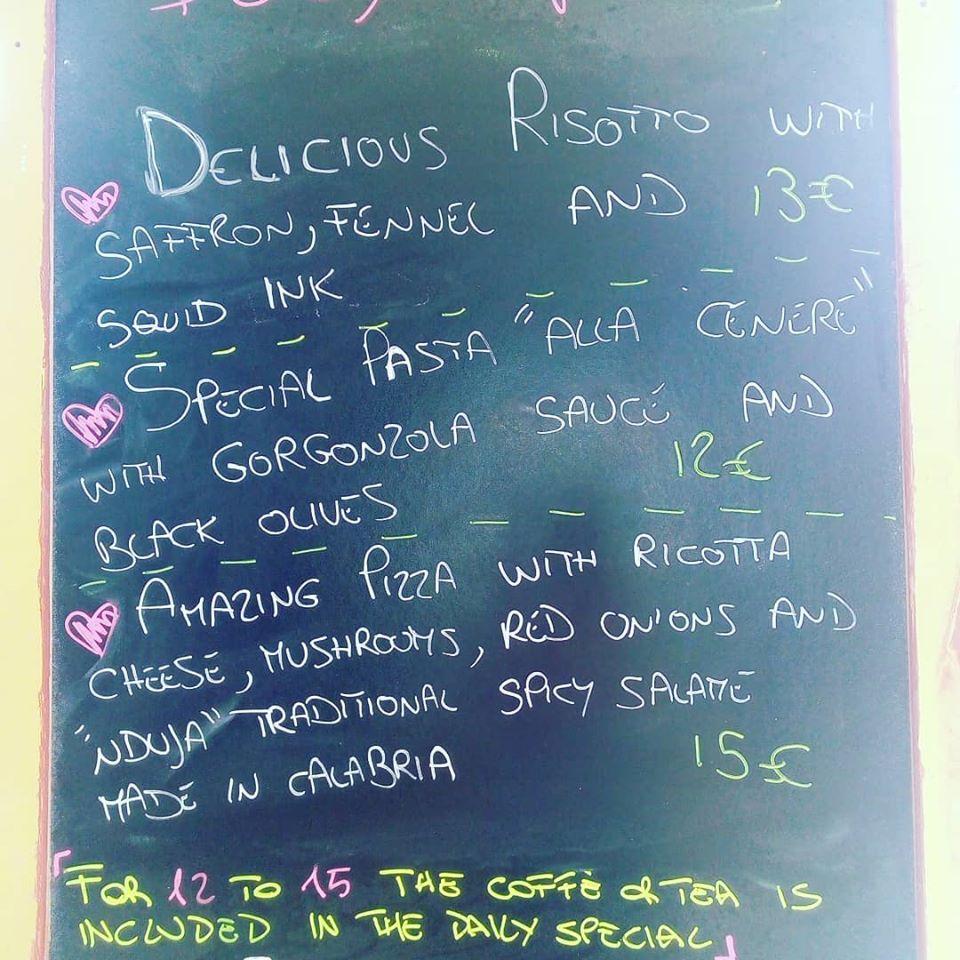 DELICIOUS RISOTTO WITH
SAFFRON, FENNEL AND 13€
SQUID INK
SPECIAL PASTA "ALLA CENERE"
WITH GORGONZOLA SAUCE AND
12€
BLACK OLIVES
AMAZING PIZZA WITH RICOTTA
CHEESE, MUSHROOMS, RED ONIONS AND
"NDUJA" TRADITIONAL SPICY SALAME
MADE IN CALABRIA 15€
FOR 12 TO 15 THE COFFÈ OR TEA IS
INCLUDED IN THE DAILY SPECIAL